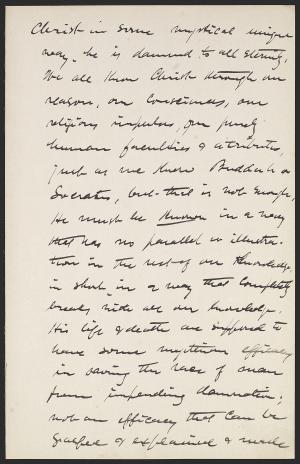 Christ in some mystical unique
way, he is damned to all eternity.
We all know Christ through our
reason, our consciences, our
religious impulses, our purely
human faculties & attributes,
just as we know Buddah or
Socrates, but that is not enough,
He must be known in a way
that has no parallel or illustra-
tion in the rest of our knowledge,
in short in a way that completely
breaks with all our knowledge.
His life & death are supposed to
have some mysterious efficacy
in saving the race of man
from impending damnation;
not an efficacy that can be
grasped & explained & made